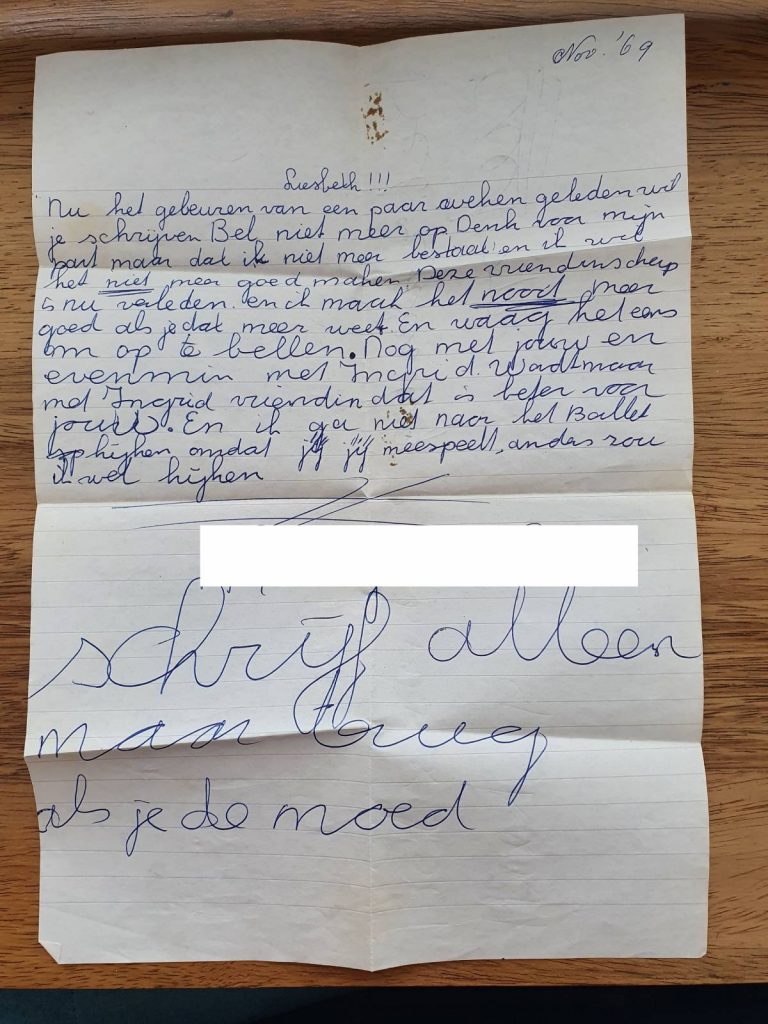 Nov. '69
Liesbeth!!!
Nu het gebeuren van een paar wehen geleden wil
je schrijven Bel niet meer op Denk voor mijn
part maar dat ik niet meer bestaat en ik wil
het niet meer goed mahen. Deze vriendenschap
is nu verleden. en ik maak het nooit meer
goed als je dat meer weet. En waag het eens
om op te bellen. Nog met jouw en
evenmin met Ingrid. Wordt maar
met Ingrid vriendin dat is beter voor
jouw. En ik ga niet naar het Ballet
op kijhen omdat jij jij meespeelt, anders zou
ik wel kijhen
schrijf alleen
maar terug
als je de moed